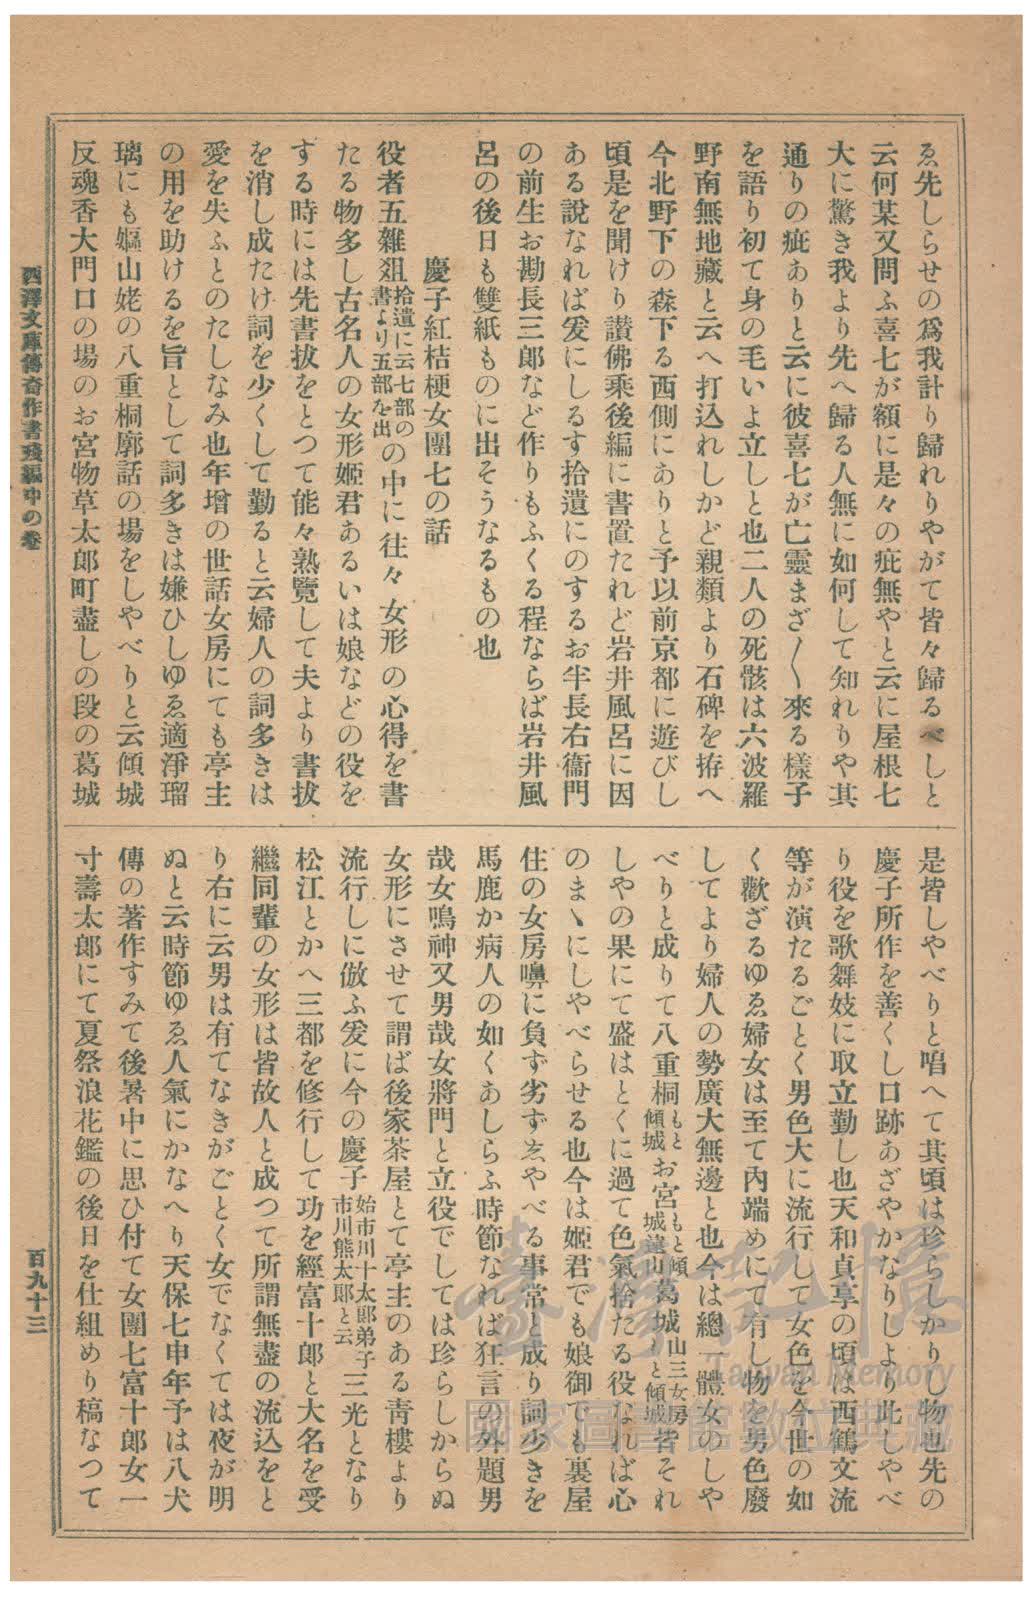 ゑ先しらせの爲我計り歸れりやがて皆々歸るべしと
云何某又問ふ喜七が額に是々の疵無やと云に屋根七
大に驚き我より先へ歸る人無に如何して知れりや其
通りの疵ありと云に彼喜七が亡靈まざ〱來る樣子
を語り初て身の毛いよ立しと也二人の死骸は六波羅
野南無地藏と云へ打込れしかど親類より石碑を拵へ
今北野下の森下る西側にありと予以前京都に遊びし
頃是を聞けり讃佛乘後編に書置たれど岩井風呂に因
ある說なれば爰にしるす拾遺にのするお半長右衞門
の前生お勘長三郎など作りもふくる程ならば岩井風
呂の後日も雙紙ものに出そうなるもの也
慶子紅桔梗女團七の話
役者五雜俎拾遺に云七部の書より五部を出の中に往々女形の心得を書
たる物多し古名人の女形姬君あるいは娘などの役を
する時には先書拔をとつて能々熟覽して夫より書拔
を消し成たけ詞を少くして勤ると云婦人の詞多きは
愛を失ふとのたしなみ也年增の世話女房にても亭主
の用を助けるを旨として詞多きは嫌ひしゆゑ適淨瑠
璃にも嫗山姥の八重桐廓話の場をしやべりと云傾城
反魂香大門口の場のお宮物草太郎町盡しの段の葛城
是皆しやべりと唱へて其頃は珍らしかりし物也先の
慶子所作を善くし口跡あざやかなりしより此しやべ
り役を歌舞妓に取立勤し也天和貞享の頃は西鶴文流
等が演たるごとく男色大に流行して女色を今世の如
く歡ざるゆゑ婦女は至て內端めにて有し物を男色廢
してより婦人の勢廣大無邊と也今は總一體女のしや
べりと成りて八重桐もと傾城お宮もと傾城遠山葛城山三女房もと傾城皆それ
しやの果にて盛はとくに過て色氣捨たる役なれば心
のまゝにしやべらせる也今は姬君でも娘御でも裏屋
住の女房嚊に負ず劣ずゑやべる事常と成り詞少きを
馬鹿か病人の如くあしらふ時節なれば狂言の外題男
哉女鳴神又男哉女將門と立役でしては珍らしからぬ
女形にさせて謂ば後家茶屋とて亭主のある靑樓より
流行しに倣ふ爰に今の慶子始市川十太郎弟子市川熊太郎と云三光となり
松江とかへ三都を修行して功を經富十郎と大名を受
繼同輩の女形は皆故人と成つて所謂無盡の流込をと
り右に云男は有てなきがごとく女でなくては夜が明
ぬと云時節ゆゑ人氣にかなへり天保七申年予は八犬
傳の著作すみて後暑中に思ひ付て女團七富十郎女一
寸壽太郎にて夏祭浪花鑑の後日を仕組めり稿なつて
西澤文庫傳奇作書殘編中の卷
百九十三
臺灣記憶
Taiwan Memory
國家圖書館數位典藏